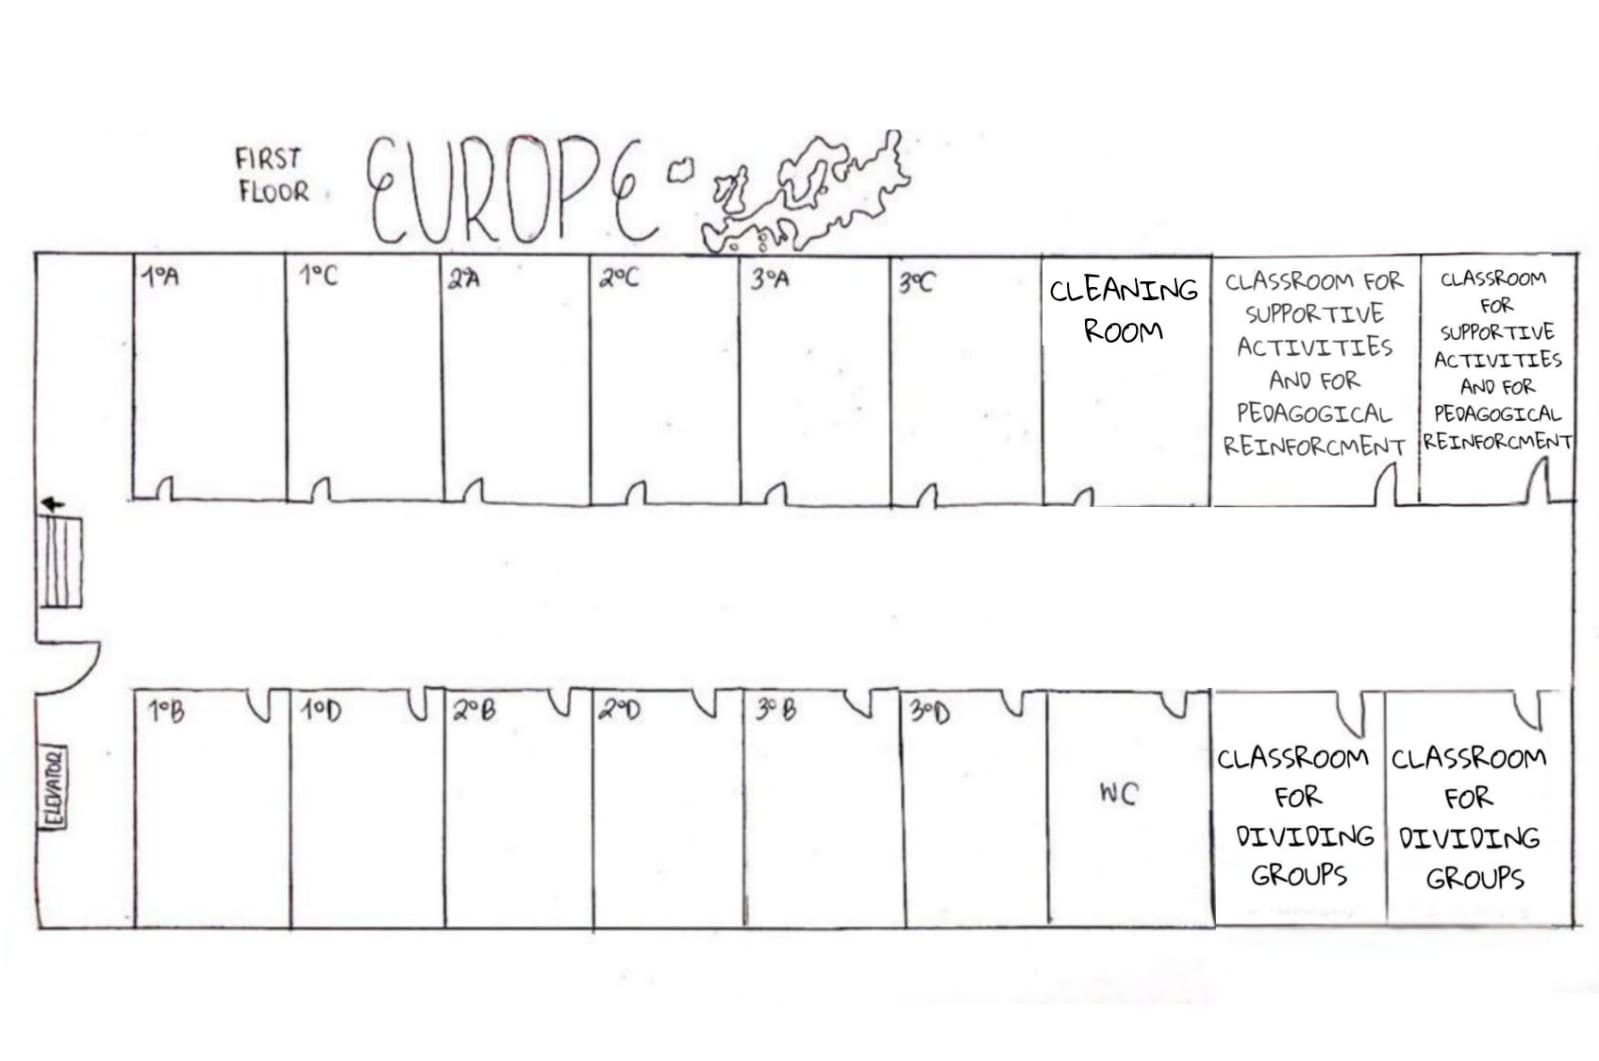 FIRST
FLOOR
EUROPE
1ºA
1ºC
2ºA
2ºC
3ºA
3ºC
CLEANING
ROOM
CLASSROOM FOR
SUPPORTIVE
ACTIVITIES
AND FOR
PEDAGOGICAL
REINFORCMENT
CLASSROOM
FOR
SUPPORTIVE
ACTIVITIES
AND FOR
PEDAGOGICAL
REINFORCMENT
ELEVATOR
1ºB
1ºD
2ºB
2ºD
3ºB
3ºD
WC
CLASSROOM
FOR
DIVIDING
GROUPS
CLASSROOM
FOR
DIVIDING
GROUPS